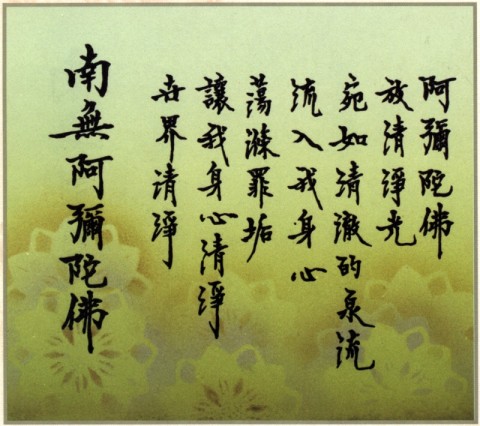 阿彌陀佛
放清淨光
宛如清澈的泉流
流入我身心
蕩滌罪垢
讓我身心清淨
世界清淨
南無阿彌陀佛